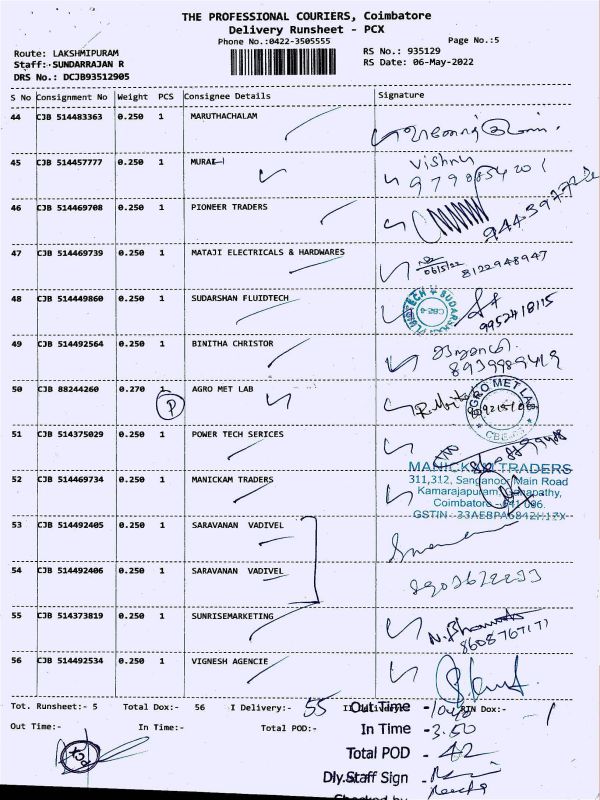 THE PROFESSIONAL COURIERS, Coimbatore
Delivery Runsheet - PCX
Phone No.:0422-3505555
Page No.:5
Route: LAKSHMIPURAM
RS No.: 935129
Staff: SUNDARRAJAN R
RS Date: 06-May-2022
DRS No.: DCJB93512905
S No Consignment No Weight PCS Consignee Details Signature
44 CJB 514483363 0.250 1 MARUTHACHALAM
45 CJB 514457777 0.250 1 MURALI Vishnu
9798854201
46 CJB 514469708 0.250 1 PIONEER TRADERS
47 CJB 514469739 0.250 1 MATAJI ELECTRICALS & HARDWARES
06/5/22 8122948947
48 CJB 514449860 0.250 1 SUDARSHAN FLUIDTECH
9952418115
49 CJB 514492564 0.250 1 BINITHA CHRISTOR
8939989419
50 CJB 88244260 0.270 1 AGRO MET LAB
P
AGRO MET LAB
51 CJB 514375029 0.250 1 POWER TECH SERICES
MANICKAM TRADERS
52 CJB 514469734 0.250 1 MANICKAM TRADERS 311,312, Sanganoor Main Road
Kamarajapuram, Ganapathy,
Coimbatore - 641 006.
GSTIN - 33AEBPA6842H1ZX
53 CJB 514492405 0.250 1 SARAVANAN VADIVEL
54 CJB 514492406 0.250 1 SARAVANAN VADIVEL
55 CJB 514373819 0.250 1 SUNRISEMARKETING
8608767171
56 CJB 514492534 0.250 1 VIGNESH AGENCIE
Tot. Runsheet:- 5 Total Dox:- 56 I Delivery:- 55
Out Time:- In Time:- Total POD:-
Out Time
In Time - 3.50
Total POD - 42
Dly.Staff Sign -
Checked by